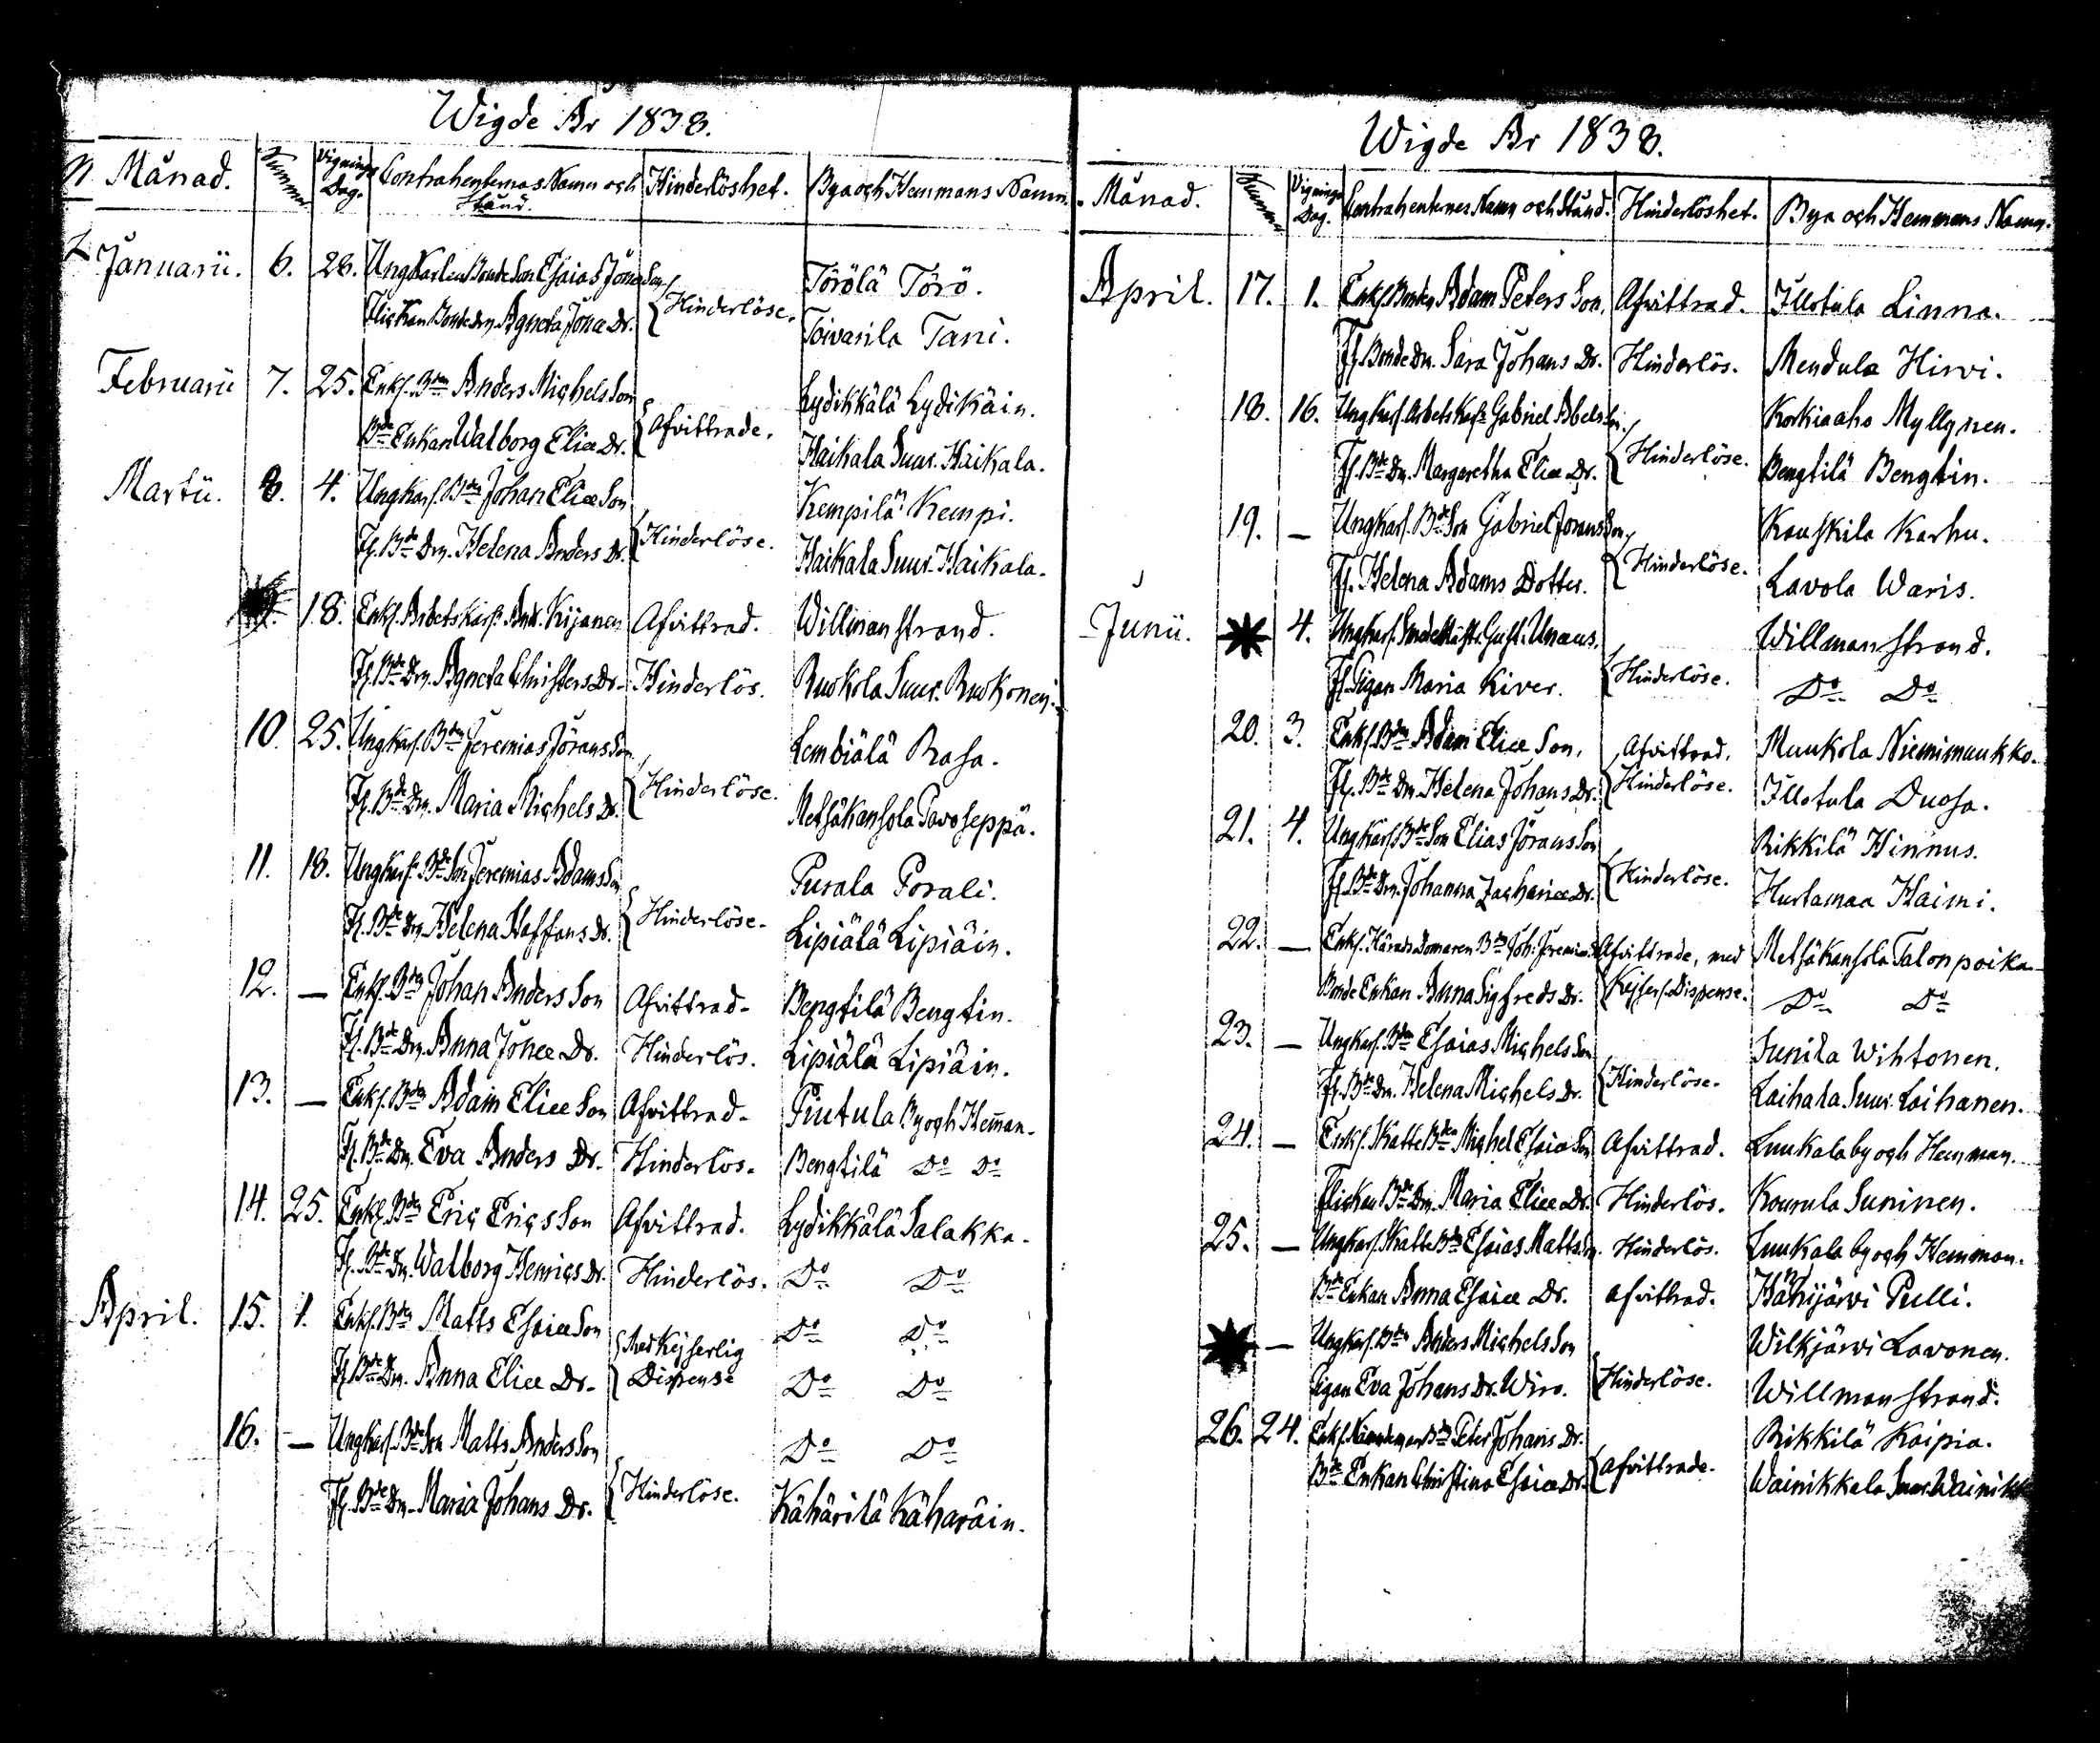 Wigde År 1838.
Månad. Nummer Vignings Dag. Contrahenternas Namn och Stånd. Hinderlöshet. Bya och Hemmans Namn.
Januarii. 6. 28. Ungkarlen Bonde Son Esaias Jönæ Son Törölä Törö.
Flickan Bonde Drn. Agneta Jonæ Dr. Hinderlöse. Toivarila Tani.
Februarii 7. 25. Enkl. Bden Anders Michels Son Lydikkälä Lydikäin.
Bde Enkan Walborg Eliæ Dr. Afvittrade. Haikala Suur-Haikala.
Martii. 8. 4. Ungkarl. Bden Johan Eliæ Son Kempilä Kempi.
Fl. Bde Drn. Helena Anders Dr. Hinderlöse. Haikala Suur-Haikala.
18. Enkl. Arbets Karl. And. Kijanen Afvittrad. Willmanstrand.
Fl. Bde Drn. Agneta Christers Dr. Hinderlös. Ruokola Suur-Ruokonen.
10. 25. Ungkarl. Bden Jeremias Jörans Son Lembiälä Rasa.
Fl. Bde Drn. Maria Michels Dr. Hinderlöse. Metsäkansola Pavoseppä.
11. 18. Ungkarl. Bde Son Jeremias Adams Son Purala Porali.
Fl. Bde Drn. Helena Staffans Dr. Hinderlöse. Lipiälä Lipiäin.
12. — Enkl. Bden Johan Anders Son Afvittrad. Bengtilä Bengtin.
Fl. Bde Drn. Anna Jonæ Dr. Hinderlös. Lipiälä Lipiäin.
13. — Enkl. Bden Adam Eliæ Son Afvittrad. Pintula By och Heman.
Fl. Bde Drn. Eva Anders Dr. Hinderlös. Bengtilä Do Do
14. 25. Enkl. Bden Eric Erics Son Afvittrad. Lydikkälä Salakka.
Fl. Bde Drn. Walborg Henrics Dr. Hinderlös. Do Do
April. 15. 1. Enkl. Bden Matts Esaiæ Son Med Kejserlig Do Do
Fl. Bde Drn. Anna Eliæ Dr. Dispense Do Do
16. — Ungkarl. Bde Son Matts Anders Son Do Do
Fl. Bde Drn. Maria Johans Dr. Hinderlöse. Kähärilä Käharäin.
Wigde År 1838.
Månad. Nummer Vignings Dag. Contrahenternas Namn och Stånd. Hinderlöshet. Bya och Hemmans Namn.
April. 17. 1. Enkl. Bonden Adam Peters Son. Afvittrad. Illotula Linna.
Fl. Bonde Dn. Sara Johans Dr. Hinderlös. Mendula Hirvi.
18. 16. Ungkarl. Arbets Karl. Gabriel Abels Son. Korkiaaho Myllynen.
Fl. Bde Dn. Margaretha Eliæ Dr. Hinderlöse. Bengtilä Bengtin.
19. — Ungkarl. Bde Son Gabriel Jörans Son. Kauskila Karhu.
Fl. Helena Adams Dotter. Hinderlöse. Lavola Waris.
Junii. 4. Ungkarl. Willmanstrand.
Fl. Pigan Maria Kiver. Hinderlöse. Do Do
20. 3. Enkl. Bden Adam Eliæ Son. Afvittrad. Muukola Niemimuukko.
Fl. Bde Dn. Helena Johans Dr. Hinderlöse. Illotula Duosa.
21. 4. Ungkarl. Bde Son Elias Jörans Son Rikkilä Hinnus.
Fl. Bde Drn. Johanna Zachariæ Dr. Hinderlöse. Hurtamaa Haimi.
22. — Enkl. Härads Domaren Bden Joh. Afvittrade, med Metsäkansola Talonpoika
Bonde Enkan Anna Sigfreds Dr. Kejserl. Dispense. Do Do
23. — Ungkarl. Bden Esaias Michels Son Sunila Wihtonen.
Fl. Bde Dn. Helena Michels Dr. Hinderlöse. Laihala Suur-Laihanen.
24. — Enkl. Skatte Bden Michel Esaiæ Son Afvittrad. Luukala by och Hemman.
Flickan Bde Dn. Maria Eliæ Dr. Hinderlös. Kourula Suninen.
25. — Ungkarl. Skatte Bden Esaias Matts Son. Hinderlös. Luukala by och Hemman.
Bde Enkan Anna Esaiæ Dr. afvittrad. Hänijärvi Pulli.
— Ungkarl. Bden Anders Michels Son Wilkjärvi Lavonen.
Pigan Eva Johans Dr. Wiro. Hinderlöse. Willmanstrand.
26. 24. Enkl. Nämdeman Bden Peter Johans Dr. Rikkilä Kaipia.
Bde Enkan Christina Esaiæ Dr. afvittrade. Wainikkala Suur-Wainikk